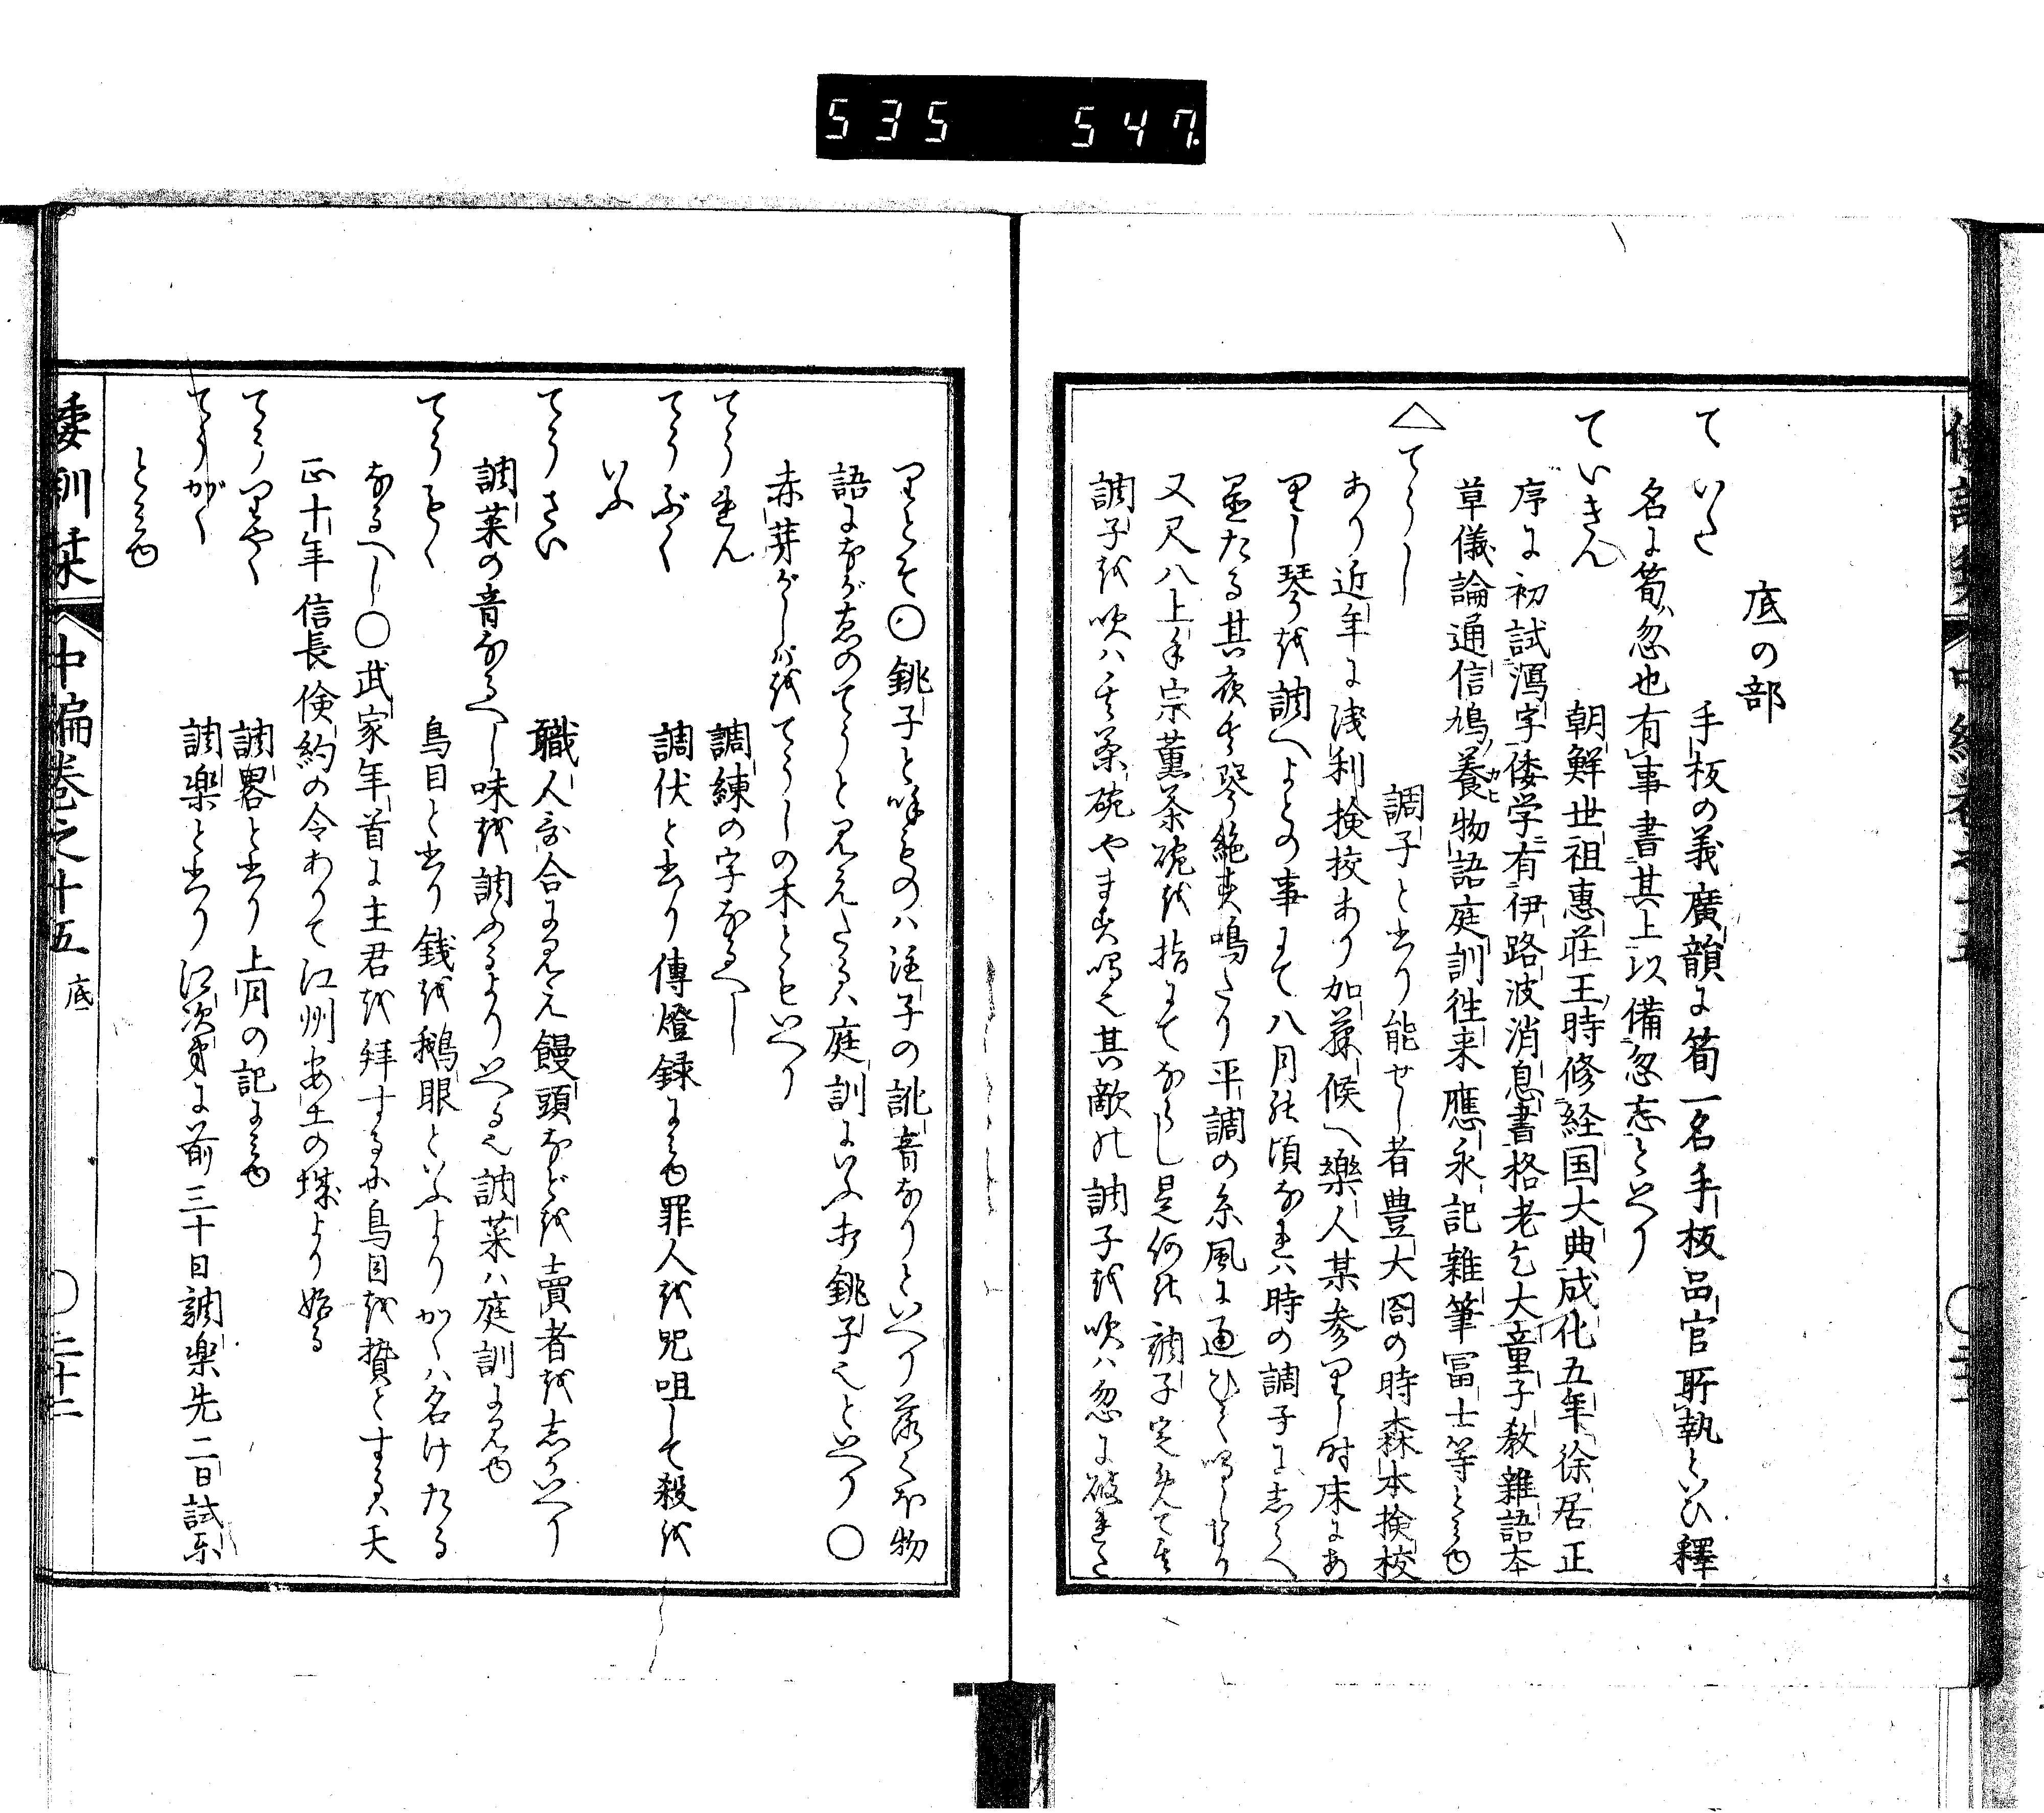 535 547
底の部
ていた 手板の義廣韻に笏一名手板品官所執といひ釋
名に笏忽也有事書其上以備忽忘といへり
ていきん 朝鮮世祖惠荘王時修経国大典成化五年徐居正
序に初試寫字倭学有伊路波消息書格老乞大童子教雜語本
草儀論通信鳩養物語庭訓往来應永記雜筆冨士等とみゆ
△てうし 調子と書り能せし者豊大閤の時森本検校
あり近年に浅利検校あり加藤候へ樂人某参りし時床にあ
りし琴を調へよとの事にて八月の頃なれハ時の調子に志らへ
置たる其夜半琴絶出鳴たり平調の糸風に通ひて鳴しなり
又尺八上手宗薫茶碗を指にてならし是何の調子定めて其
調子を吹ハ此茶碗やまず鳴也其敵の調子を吹ハ忽に破れた
りとそ○銚子と呼ものハ注子の訛音なりといへり落くほ物
語にながゑのてうと見えたるハ庭訓にいふ赤銚子也といへり○
赤芽がしハをてうしの木ともいへり
てうれん 調練の字なるへし
てうぶく 調伏と書り傳燈録にみゆ罪人を咒咀して殺を
いふ
てうさい 職人歌合に見え饅頭などを賣者を志かいへり
調菜の音なるへし味を調ふるよりいへる也調菜ハ庭訓に見ゆ
てうもく 鳥目と書り銭を鵝眼といふよりかくハ名けたる
なるへし○武家年首に主君を拜するに鳥目を贄とするハ天
正十年信長倹約の令ありて江州安土の城より始る
てうりやく 調畧と書り上月の記にみゆ
てうがく 調楽と書り江次第に前三十日調楽先二日試楽
とみゆ
倭訓栞 中編巻之十五 底 ○二十二